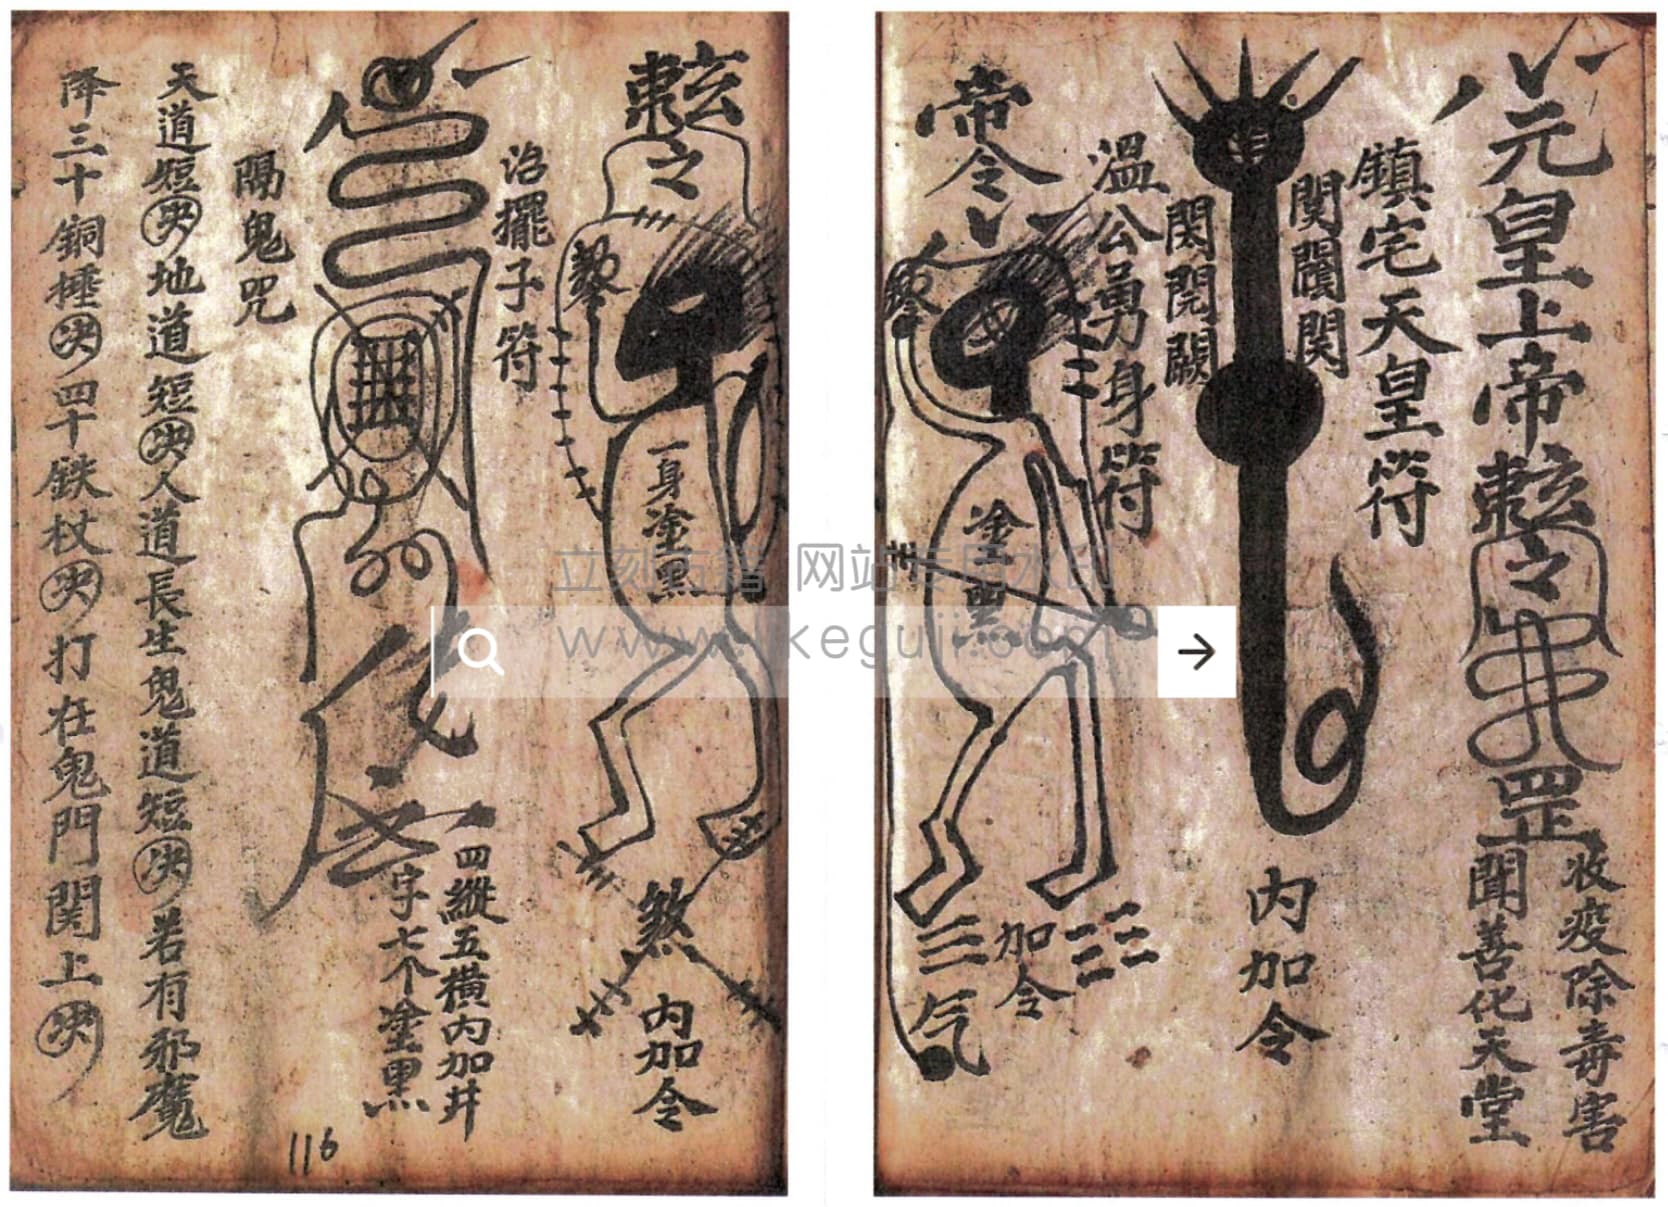 八元皇上帝敕令
罡
收疫除毒害
聞善化天堂
鎮宅天皇符
内加令
溫公勇身符
帝令
塗黑
加令
三气
敕令
一身塗黑
煞
内加令
治擺子符
四縱五橫内加井
字七个塗黑
隔鬼咒
天道短決地道短決人道長生鬼道短決若有邪魔
降三十銅捶決四十鉄杖決打在鬼門関上決
116
立刻古籍 网站专用水印
www.lkeguji.com